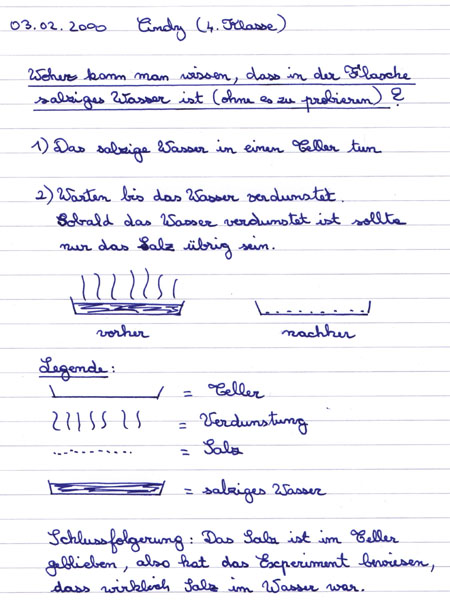 03.02.2000 Cindy (4. Klasse)
Woher kann man wissen, dass in der Flasche
salziges Wasser ist (ohne es zu probieren)?
1) Das salzige Wasser in einen Teller tun
2) Warten bis das Wasser verdunstet.
Sobald das Wasser verdunstet ist sollte
nur das Salz übrig sein.
vorher nachher
Legende:
= Teller
= Verdunstung
= Salz
= salziges Wasser
Schlussfolgerung: Das Salz ist im Teller
geblieben, also hat das Experiment bewiesen,
dass wirklich Salz im Wasser war.